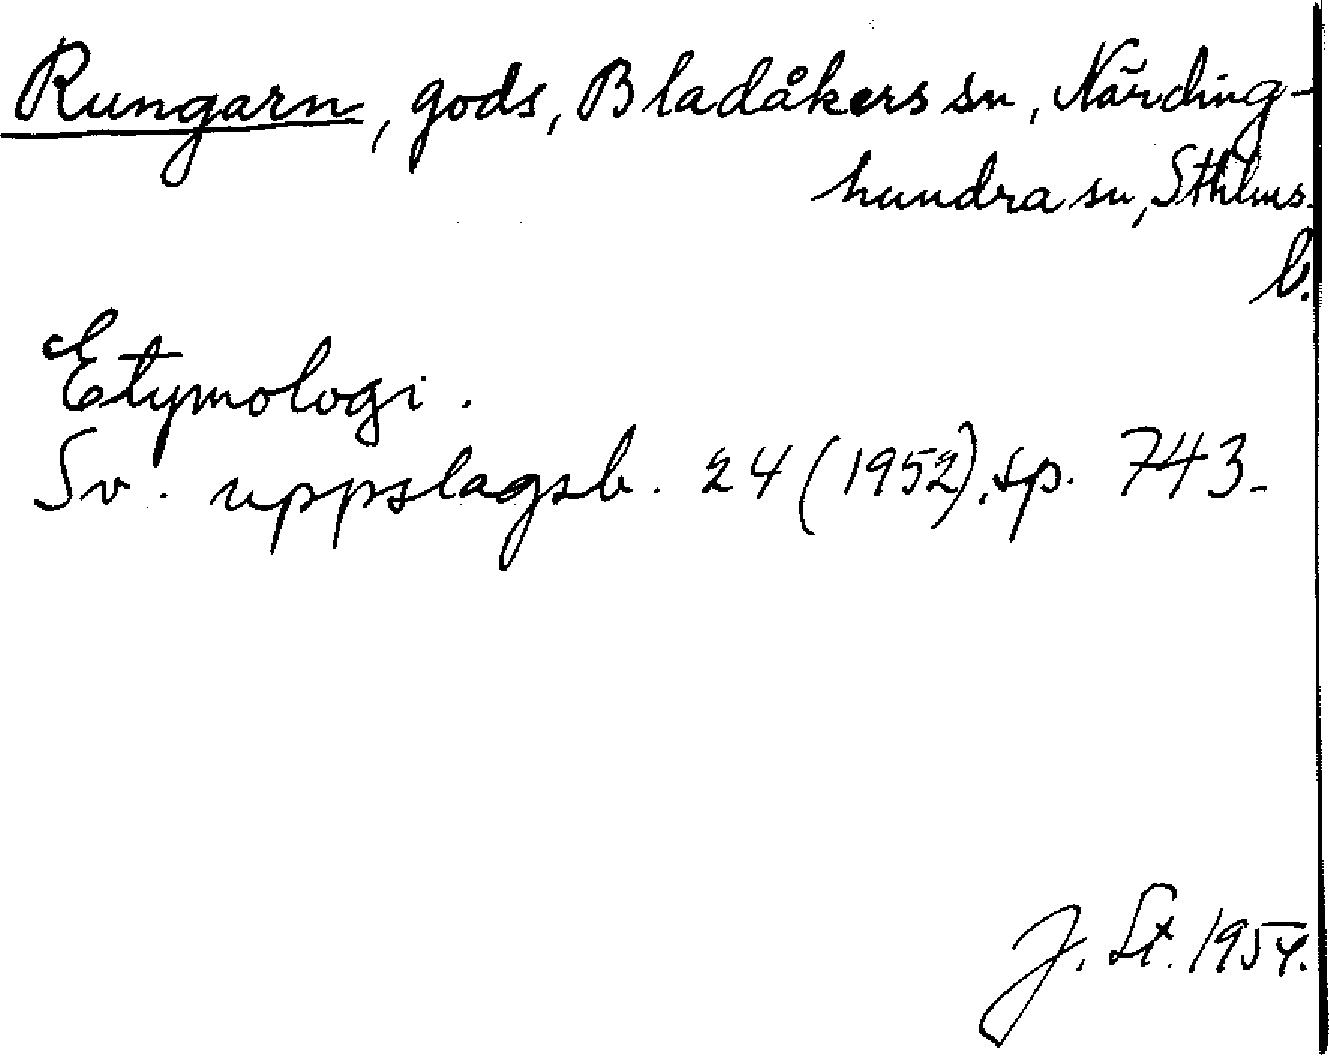 Rungarn, gods, Bladåkers sn, Närding-
hundra sn, Sthlms
l.
Etymologi.
Sv. uppslagsb. 24 (1952), sp. 743.
J. St. 1954.